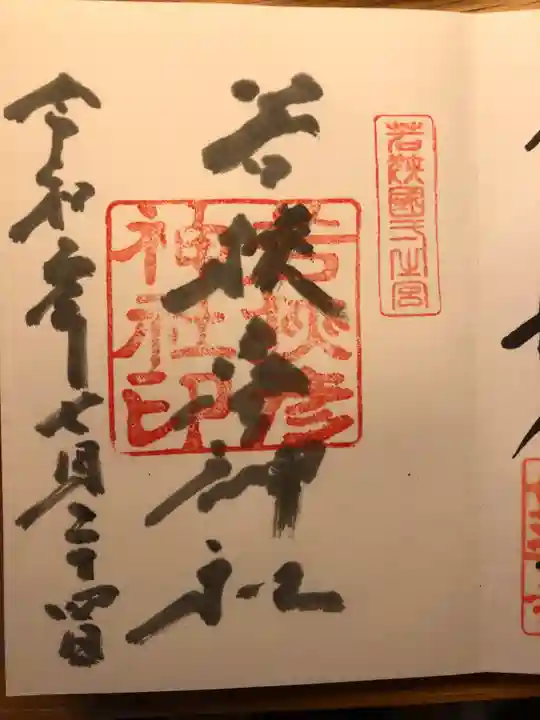 若狭國一之宮
若狭彦神社
若狭彦
神社印
令和元年七月二十四日